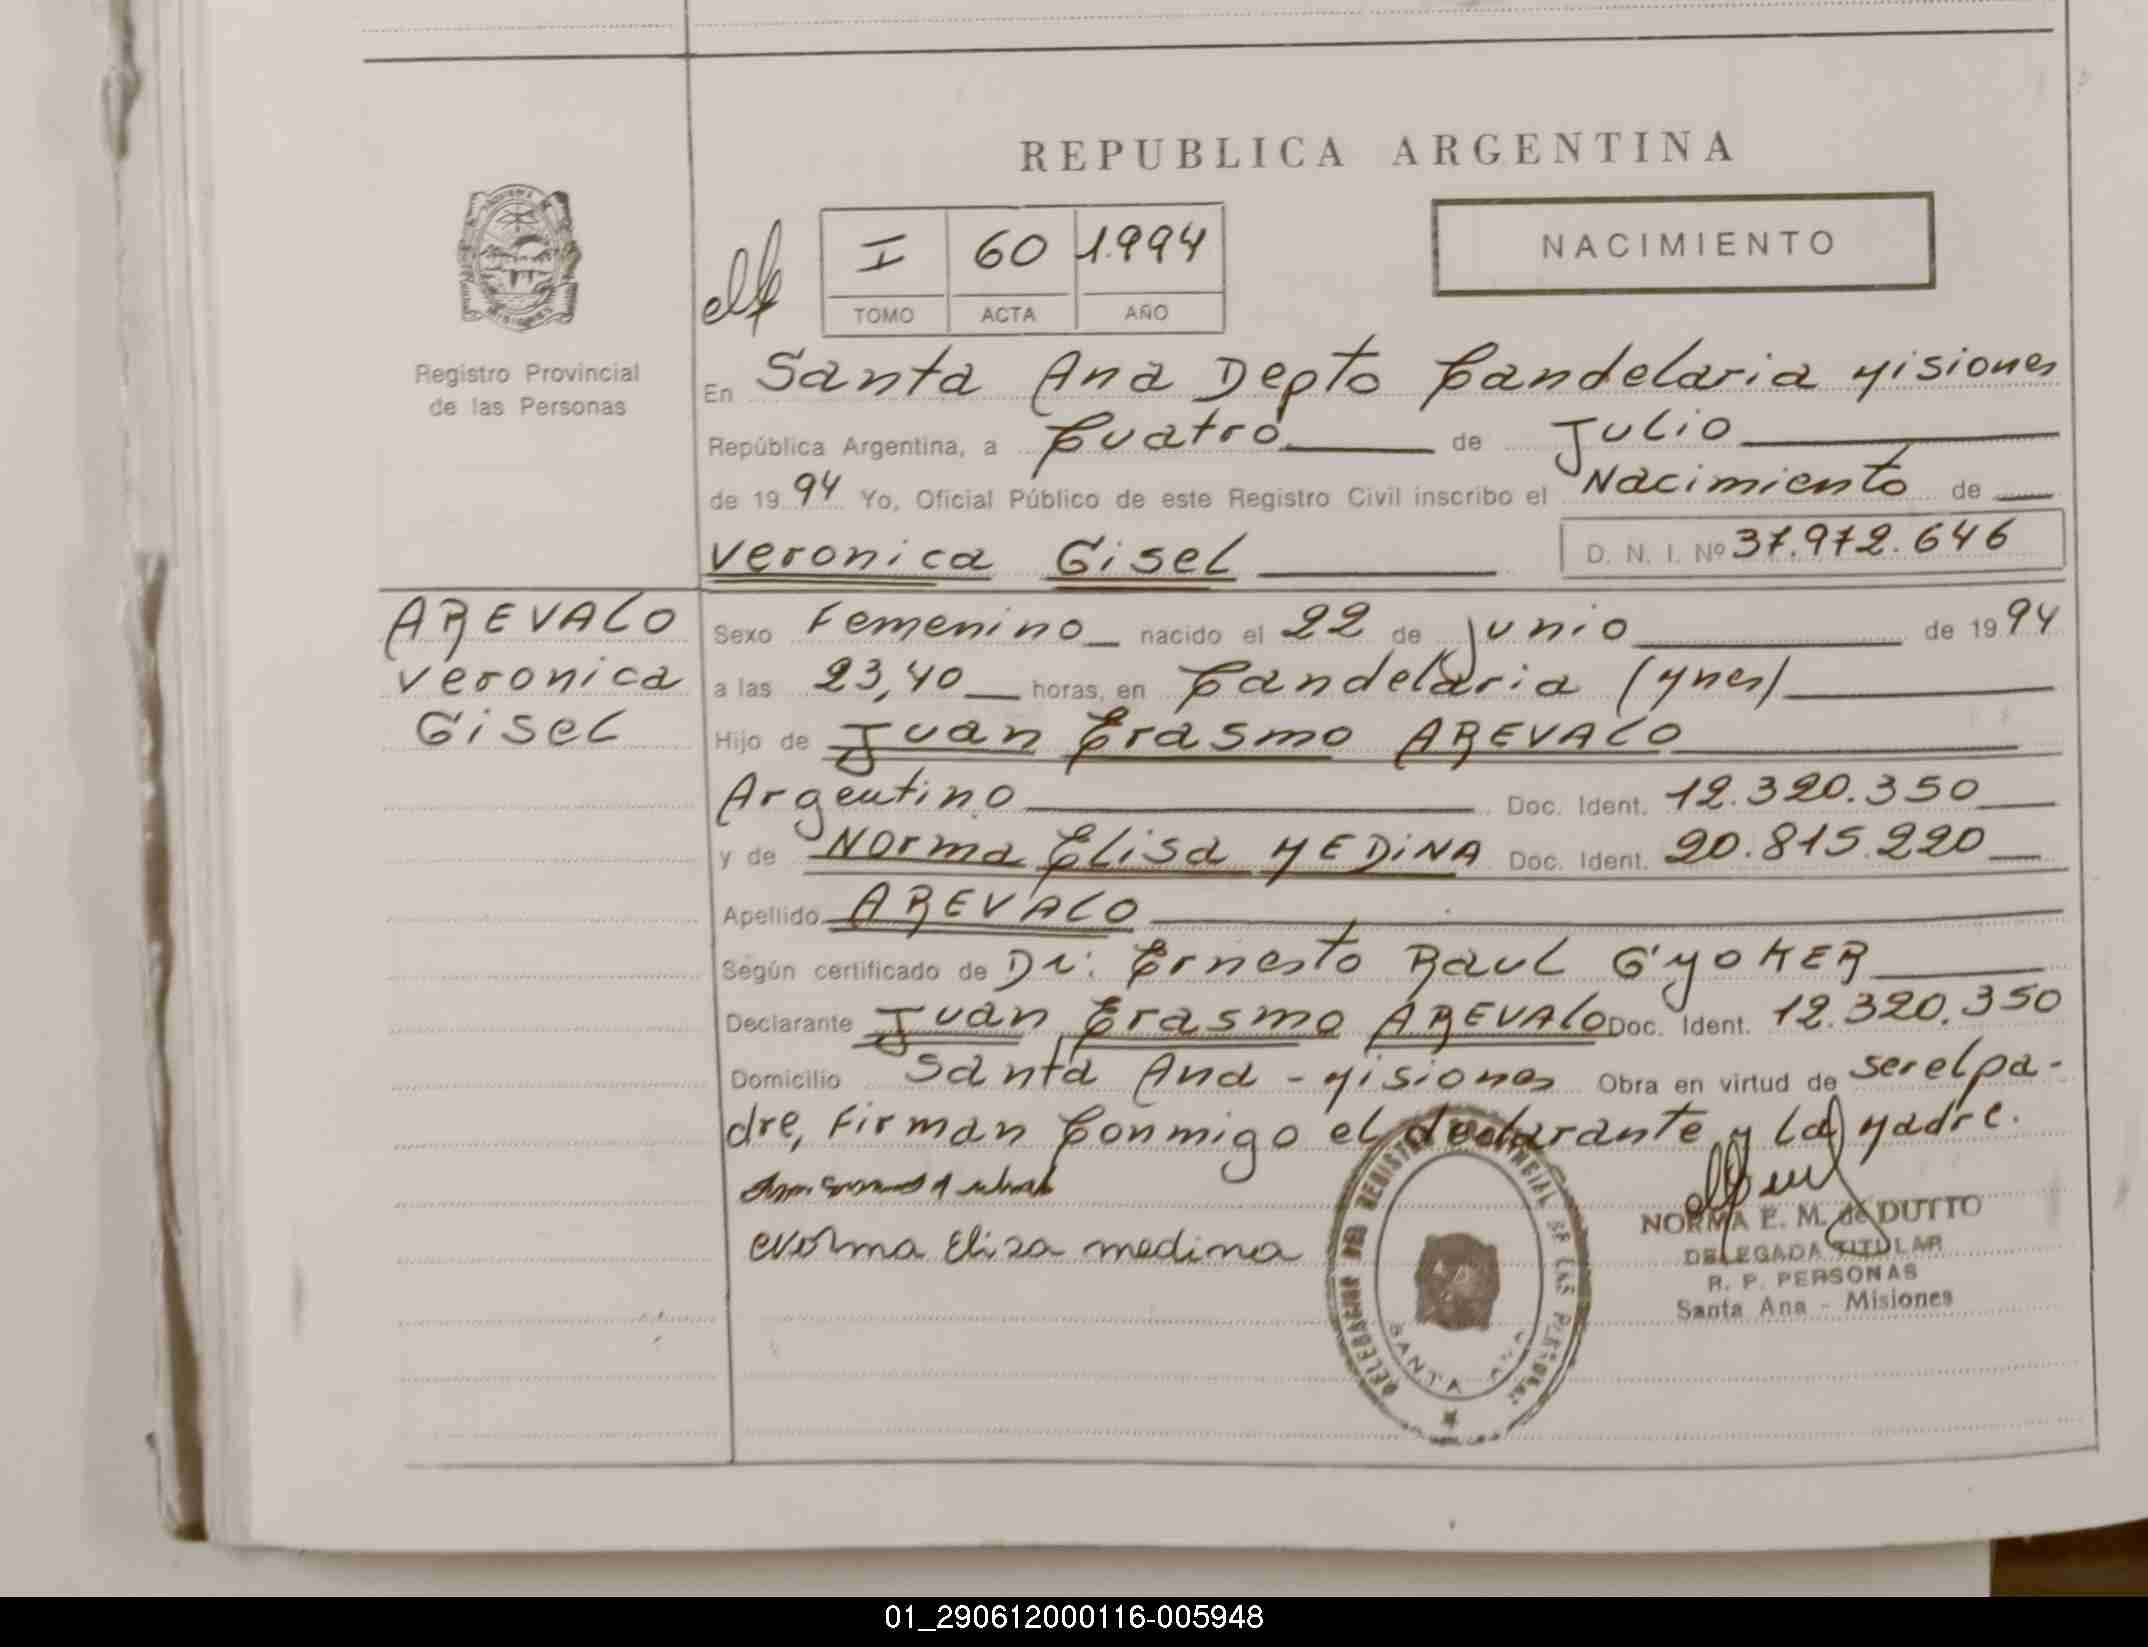 REPUBLICA ARGENTINA
NACIMIENTO
I 60 1.994
TOMO ACTA AÑO
Registro Provincial
de las Personas
En Santa Ana Depto Candelaria Misiones
República Argentina, a Cuatro de Julio
de 19 94 Yo, Oficial Público de este Registro Civil inscribo el Nacimiento de
Veronica Gisel D. N. I. Nº 37.972.646
AREVALO
Veronica
Gisel
Sexo Femenino nacido el 22 de junio de 19 94
a las 23,40 horas, en Candelaria (Mnes)
Hijo de Juan Erasmo AREVALO
Argentino Doc. Ident. 12.320.350
y de Norma Elisa MEDINA Doc. Ident. 20.815.220
Apellido AREVALO
Según certificado de Dr: Ernesto Raul GYOKER
Declarante Juan Erasmo AREVALO Doc. Ident. 12.320.350
Domicilio Santa Ana - Misiones Obra en virtud de ser el pa-
dre, Firman Conmigo el declarante y La Madre.
Norma Eliza medina
DELEGACION DEL REGISTRO PROVINCIAL DE LAS PERSONAS
SANTA ANA
NORMA E. M. de DUTTO
DELEGADA TITULAR
R. P. PERSONAS
Santa Ana - Misiones
01_290612000116-005948